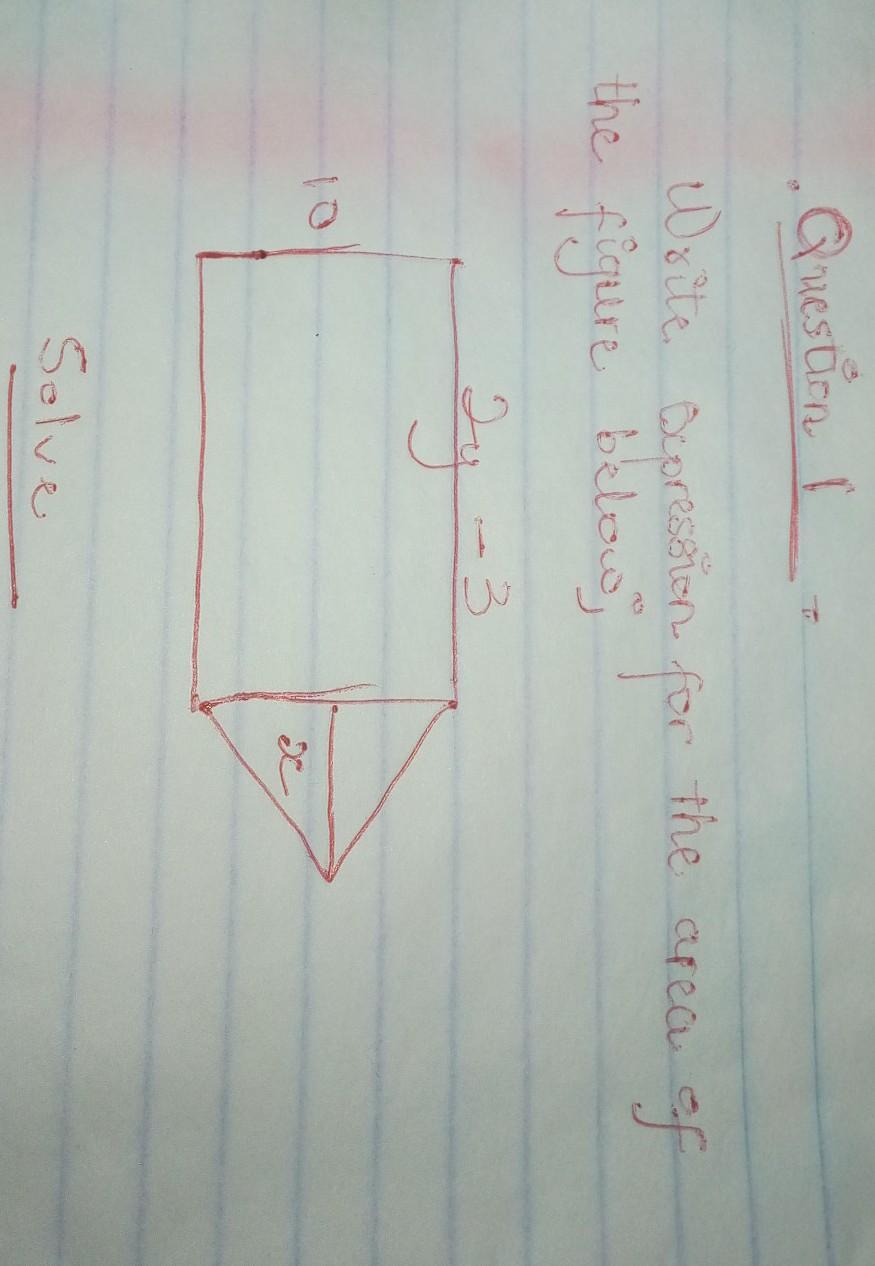 Question 1
Write expression for the area of
the figure below;
2y - 3
10
x
Solve